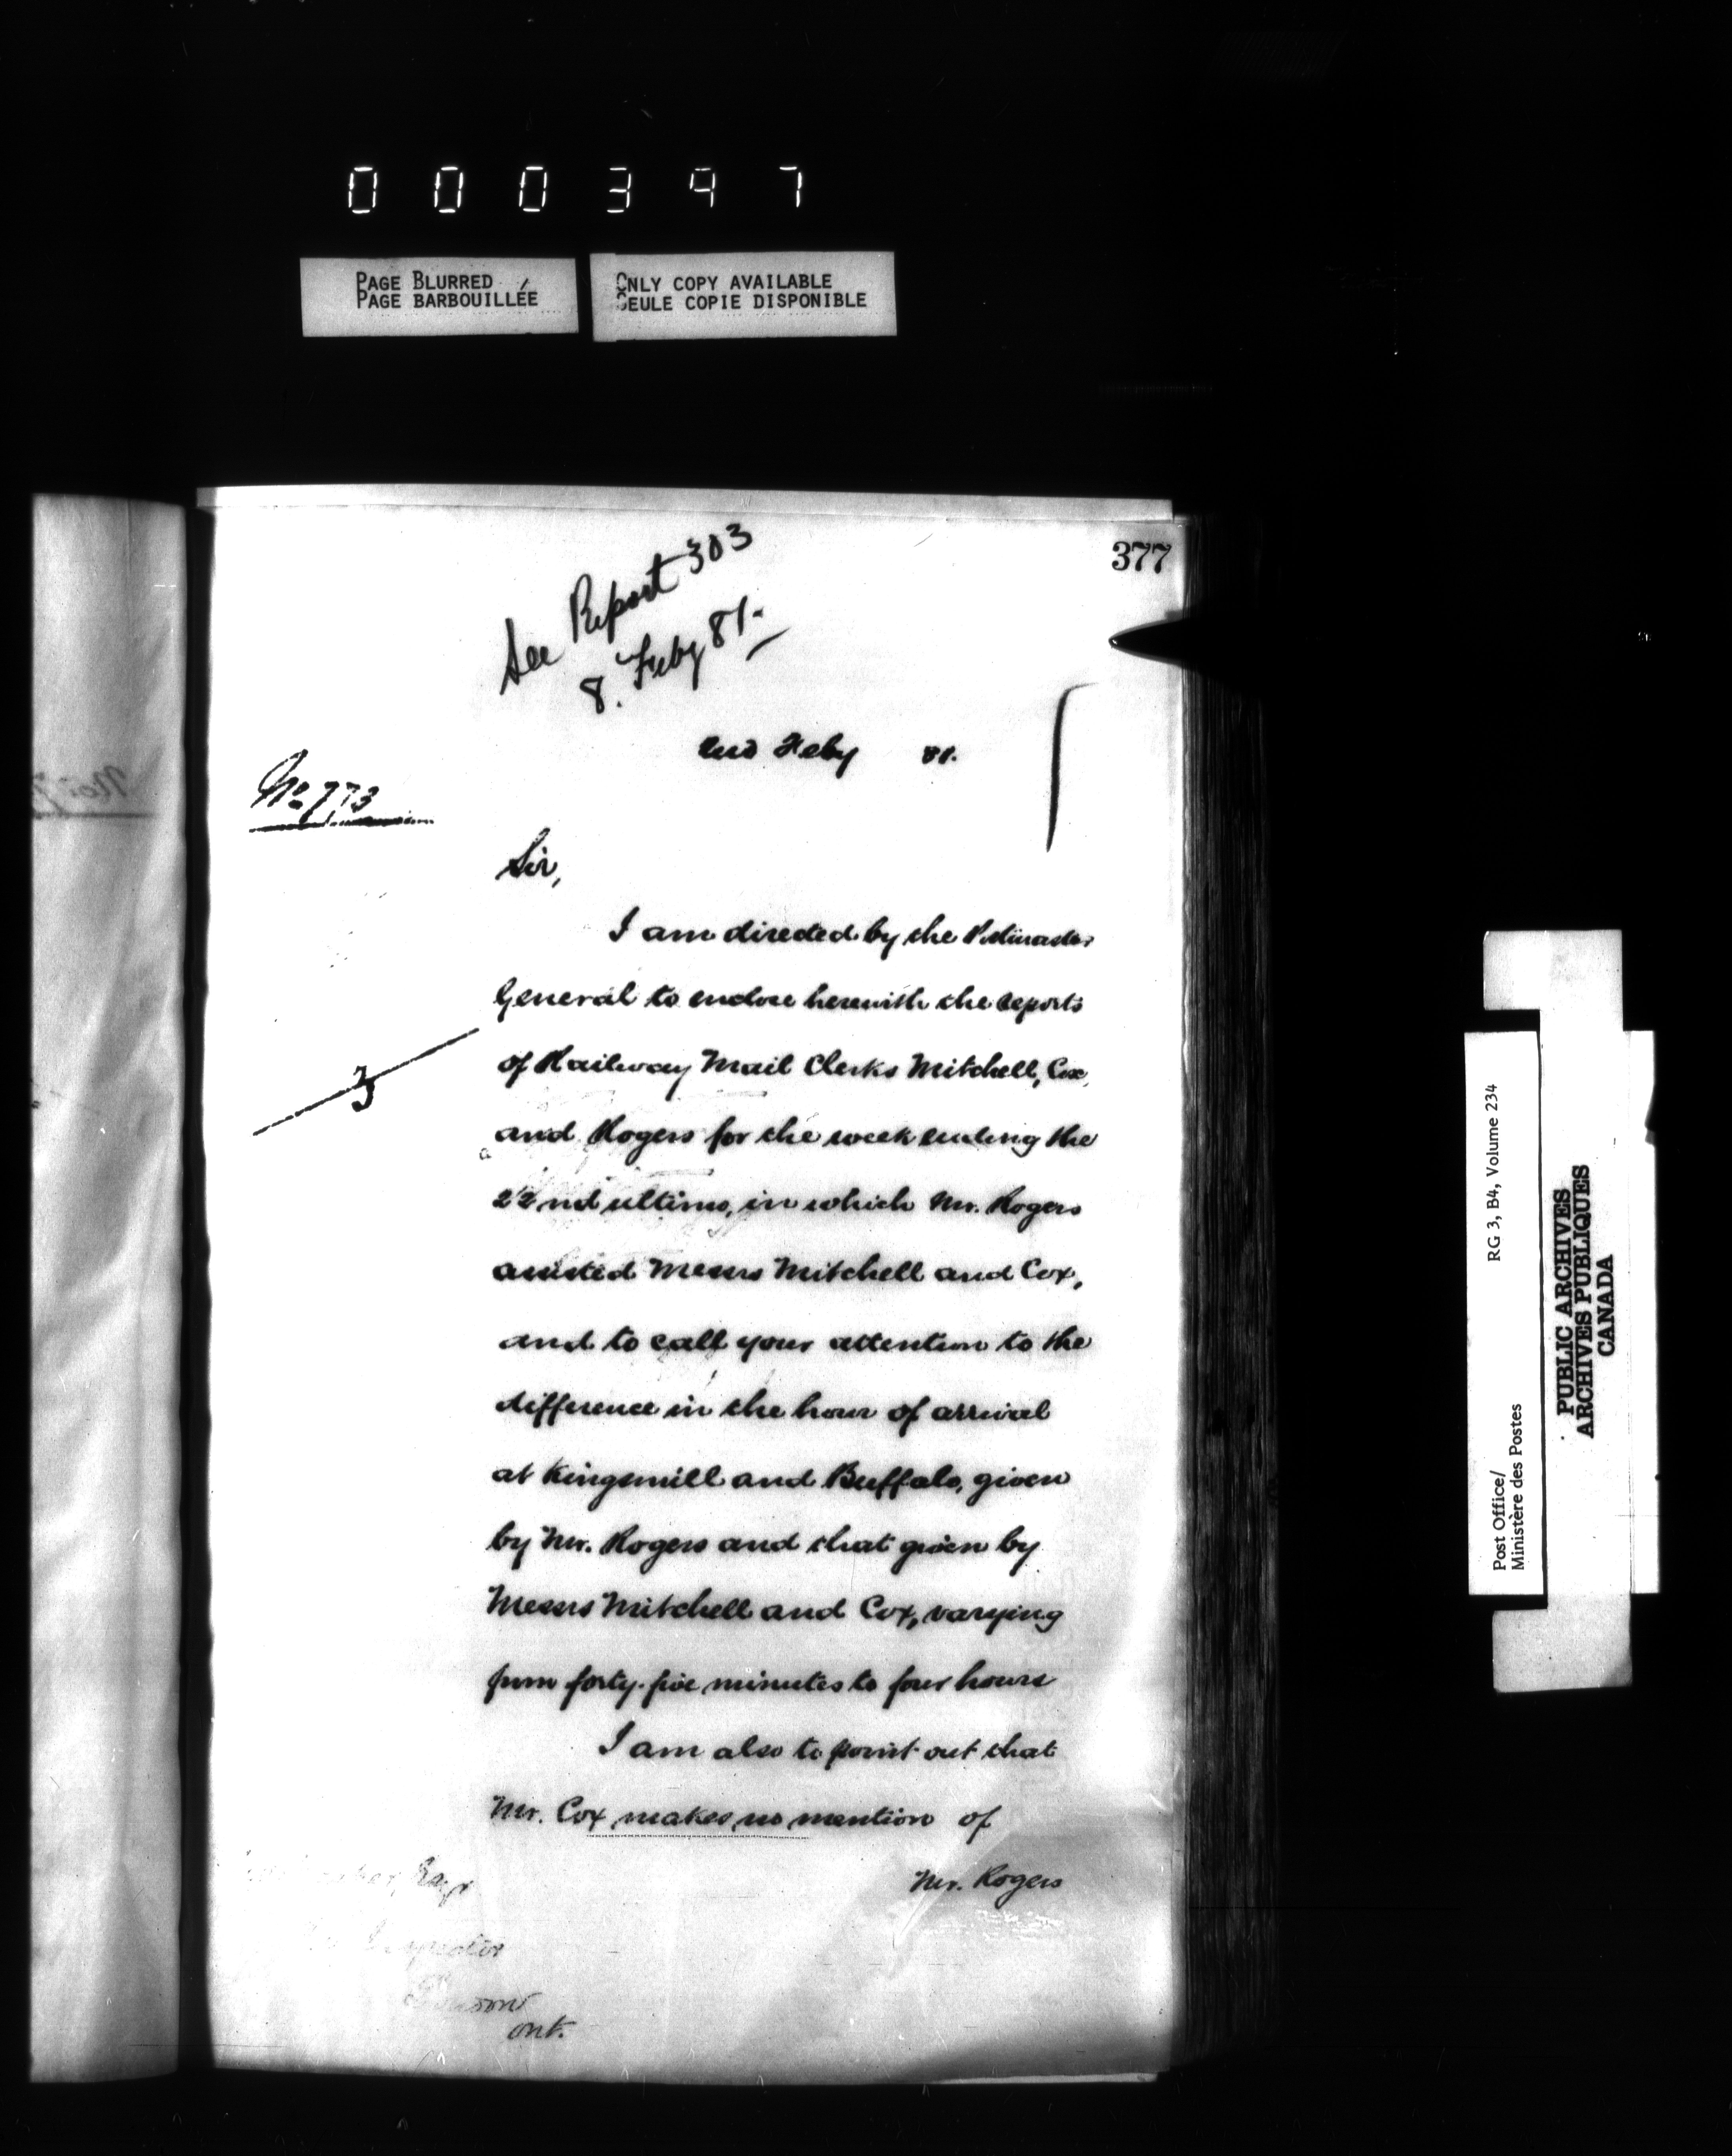 000397
PAGE BLURRED
PAGE BARBOUILLÉE
ONLY COPY AVAILABLE
SEULE COPIE DISPONIBLE
377
See Report 303
8. Feby 81.
2nd Feby 81.
No 773
Sir,
I am directed by the Postmaster
General to enclose herewith the reports
of Railway Mail Clerks Mitchell, Cox,
and Rogers for the week ending the
22nd ultimo, in which Mr. Rogers
assisted Messrs Mitchell and Cox,
and to call your attention to the
difference in the hour of arrival
at Kingsmill and Buffalo, given
by Mr. Rogers and that given by
Messrs Mitchell and Cox, varying
from forty-five minutes to four hours
I am also to point out that
Mr. Cox makes no mention of
Mr. Rogers
3
Esqr
Inspector
London
Ont.
Post Office/
Ministère des Postes
RG 3, B4, Volume 234
PUBLIC ARCHIVES
ARCHIVES PUBLIQUES
CANADA